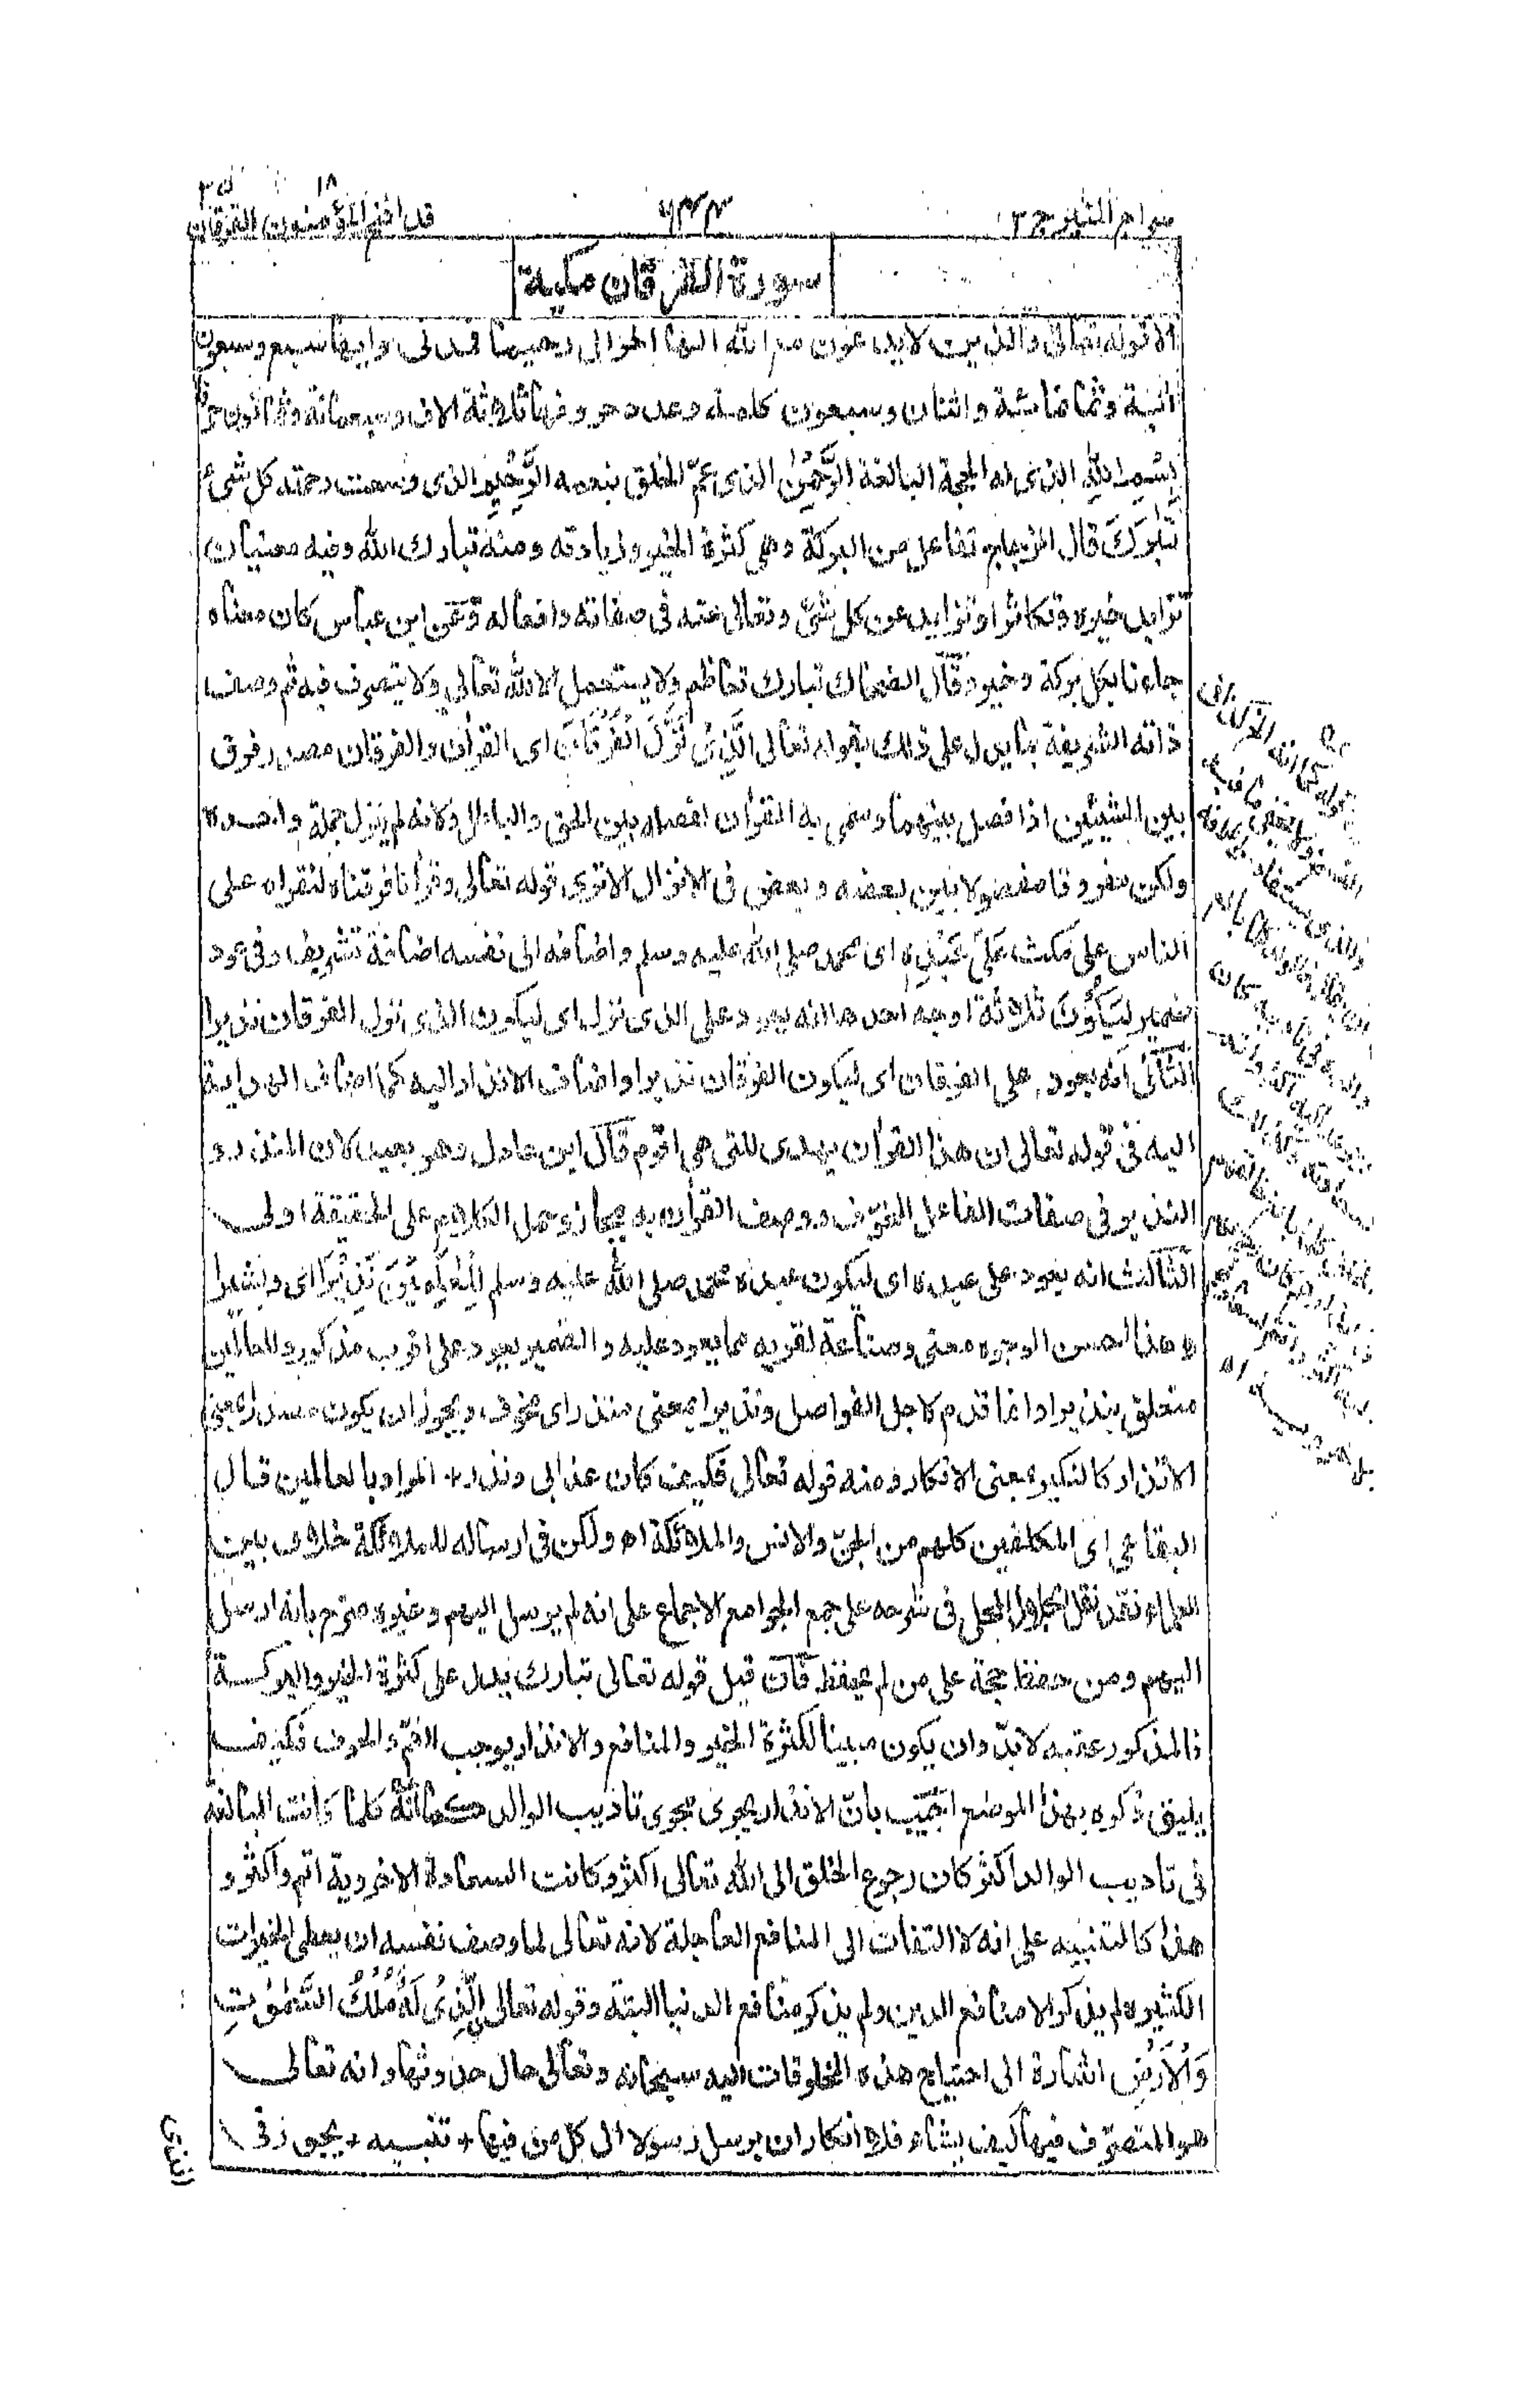 سراج المنير ج ٣
٦٣٣
قد افلح المؤمنون ١٨ الفرقان
سورة الفرقان مكية
الا قوله تعالى والذين لا يدعون مع الله الها اخر الى رحيما فمدنى وايها سبع وسبعون
اٰية وثمانمائة واثنان وسبعون كلمة وعدد حروفها ثلاثة الاف وسبعمائة وثمانون حرفا
بِسْمِ اللهِ الذى له الحجة البالغة الرَّحْمٰنِ الذى عمّ الخلق بنعمه الرَّحِيْمِ الذى وسعت رحمته كل شئ
تَبٰرَكَ قال الزجاج تفاعل من البركة وهى كثرة الخير وزيادته ومنه تبارك الله وفيه معنيان
تزايد خيره وتكاثر او تزايد عن كل شئ وتعالى عنه فى صفاته وافعاله وعن ابن عباس كان معناه
جاءنا بكل بركة وخير وقال الضحاك تبارك تعاظم ولا يستعمل الا لله تعالى ولا يتصرف فيه ثم وصف
ذاته الشريفة بما يدل على ذلك بقوله تعالى الَّذِىْ نَزَّلَ الْفُرْقَانَ اى القرأن والفرقان مصدر فرق
بين الشيئين اذا فصل بينهما وسمى به القرأن لفصله بين الحق والباطل ولانه لم ينزل جملة واحدة
ولكن مفروقا مفصولا بين بعضه وبعض فى الانزال الا ترى قوله تعالى وقرأنا فرقناه لتقراه على
الناس على مكث عَلٰى عَبْدِهٖ اى محمد صلى الله عليه وسلم واضافه الى نفسه اضافة تشريف وفى عود
ضمير لِيَكُوْنَ ثلاثة اوجه احدها انه يعود على الذى نزل اى ليكون الذى نزل الفرقان نذيرا
الثانى انه يعود على الفرقان اى ليكون الفرقان نذيرا واضاف الانذار اليه كما اضاف الهداية
اليه فى قوله تعالى ان هذا القرأن يهدى للتى هى اقوم قال ابن عادل وهو بعيد لان المنذر و
النذير فى صفات الفاعل المخوّف ووصف القرأن به مجاز وحمل الكلام على الحقيقة اولى
الثالث انه يعود على عبده اى ليكون عبده محمد صلى الله عليه وسلم لِلْعٰلَمِيْنَ نَذِيْرًا اى وبشيرا
وهذا احسن الوجوه معنى وصناعة لقربه مما يعود عليه والضمير يعود على اقرب مذكور وللعالمين
متعلق بنذيرا وانما قدم لاجل الفواصل ونذيرا بمعنى منذر اى مخوف ويجوز ان يكون مصدرا بمعنى
الانذار كالنكير بمعنى الانكار ومنه قوله تعالى فكيف كان عذابى ونذر + المراد بالعالمين قال
البقاعى اى المكلفين كلهم من الجنّ والانس والملائكة اه ولكن فى ارساله للملائكة خلاف بين
العلماء فقد نقل الجلال المحلى فى شرحه على جمع الجوامع الاجماع على انه لم يرسل اليهم وغيره صرّح بانه ارسل
اليهم ومن حفظ حجة على من لم يحفظ فان قيل قوله تعالى تبارك يدل على كثرة الخير والبركة
فالمذكور عقبه لابدّ وان يكون مبينا لكثرة الخير والمنافع والانذار يوجب الغمّ والخوف فكيف
يليق ذكره بهذا الموضع اجيب بانّ الانذار يجرى مجرى تاديب الوالد كما انه كلما كانت المبالغة
فى تاديب الوالد اكثر كان رجوع الخلق الى الله تعالى اكثر وكانت السعادة الاخروية اتم واكثر و
هذا كالتنبيه على انه لا التفات الى المنافع العاجلة لانه تعالى لما وصف نفسه ان يعطى الخيرات
الكثيرة لم يذكر الا منافع الدين ولم يذكر منافع الدنيا البتة وقوله تعالى الَّذِىْ لَهٗ مُلْكُ السَّمٰوٰتِ
وَالْاَرْضِ اشارة الى احتياج هذه المخلوقات اليه سبحانه وتعالى حال حدوثها وانه تعالى
هو المتصرّف فيها كيف يشاء فلا انكار ان يرسل رسولا الى كل من فيها + تنبيه + يجوز فى
الذى